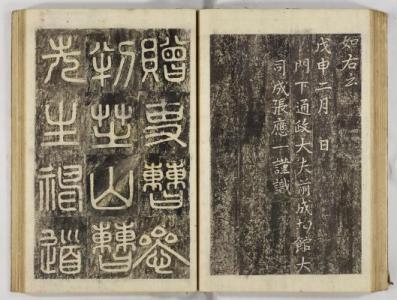 如右云
戊申二月　日
門下通政大夫前成均館大
司成張應一謹識
贈吏曹參
判芝山曹
先生神道